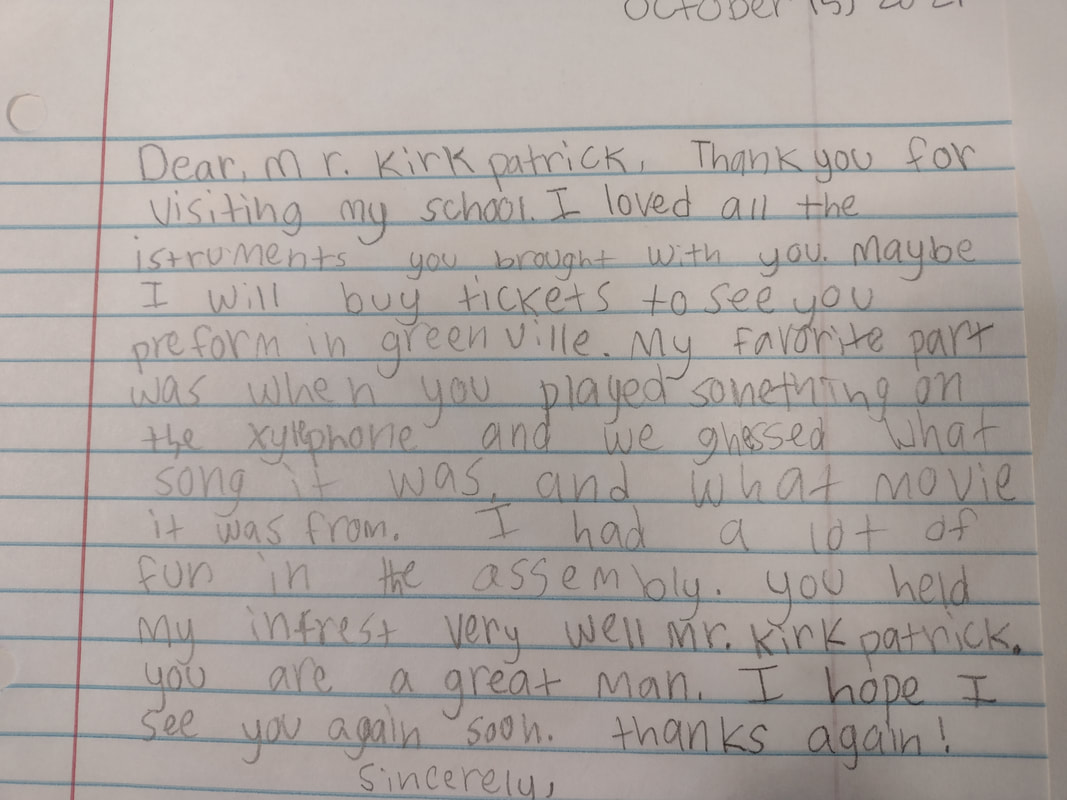 October 15, 2021
Dear, Mr. Kirk patrick, Thank you for
visiting my school. I loved all the
istruments you brought with you. Maybe
I will buy tickets to see you
preform in green ville. My favorite part
was when you played something on
the xylephone and we ghessed what
song it was, and what movie
it was from. I had a lot of
fun in the assembly. you held
my intrest very well Mr. Kirk patrick.
you are a great man. I hope I
see you again soon. thanks again!
Sincerely,